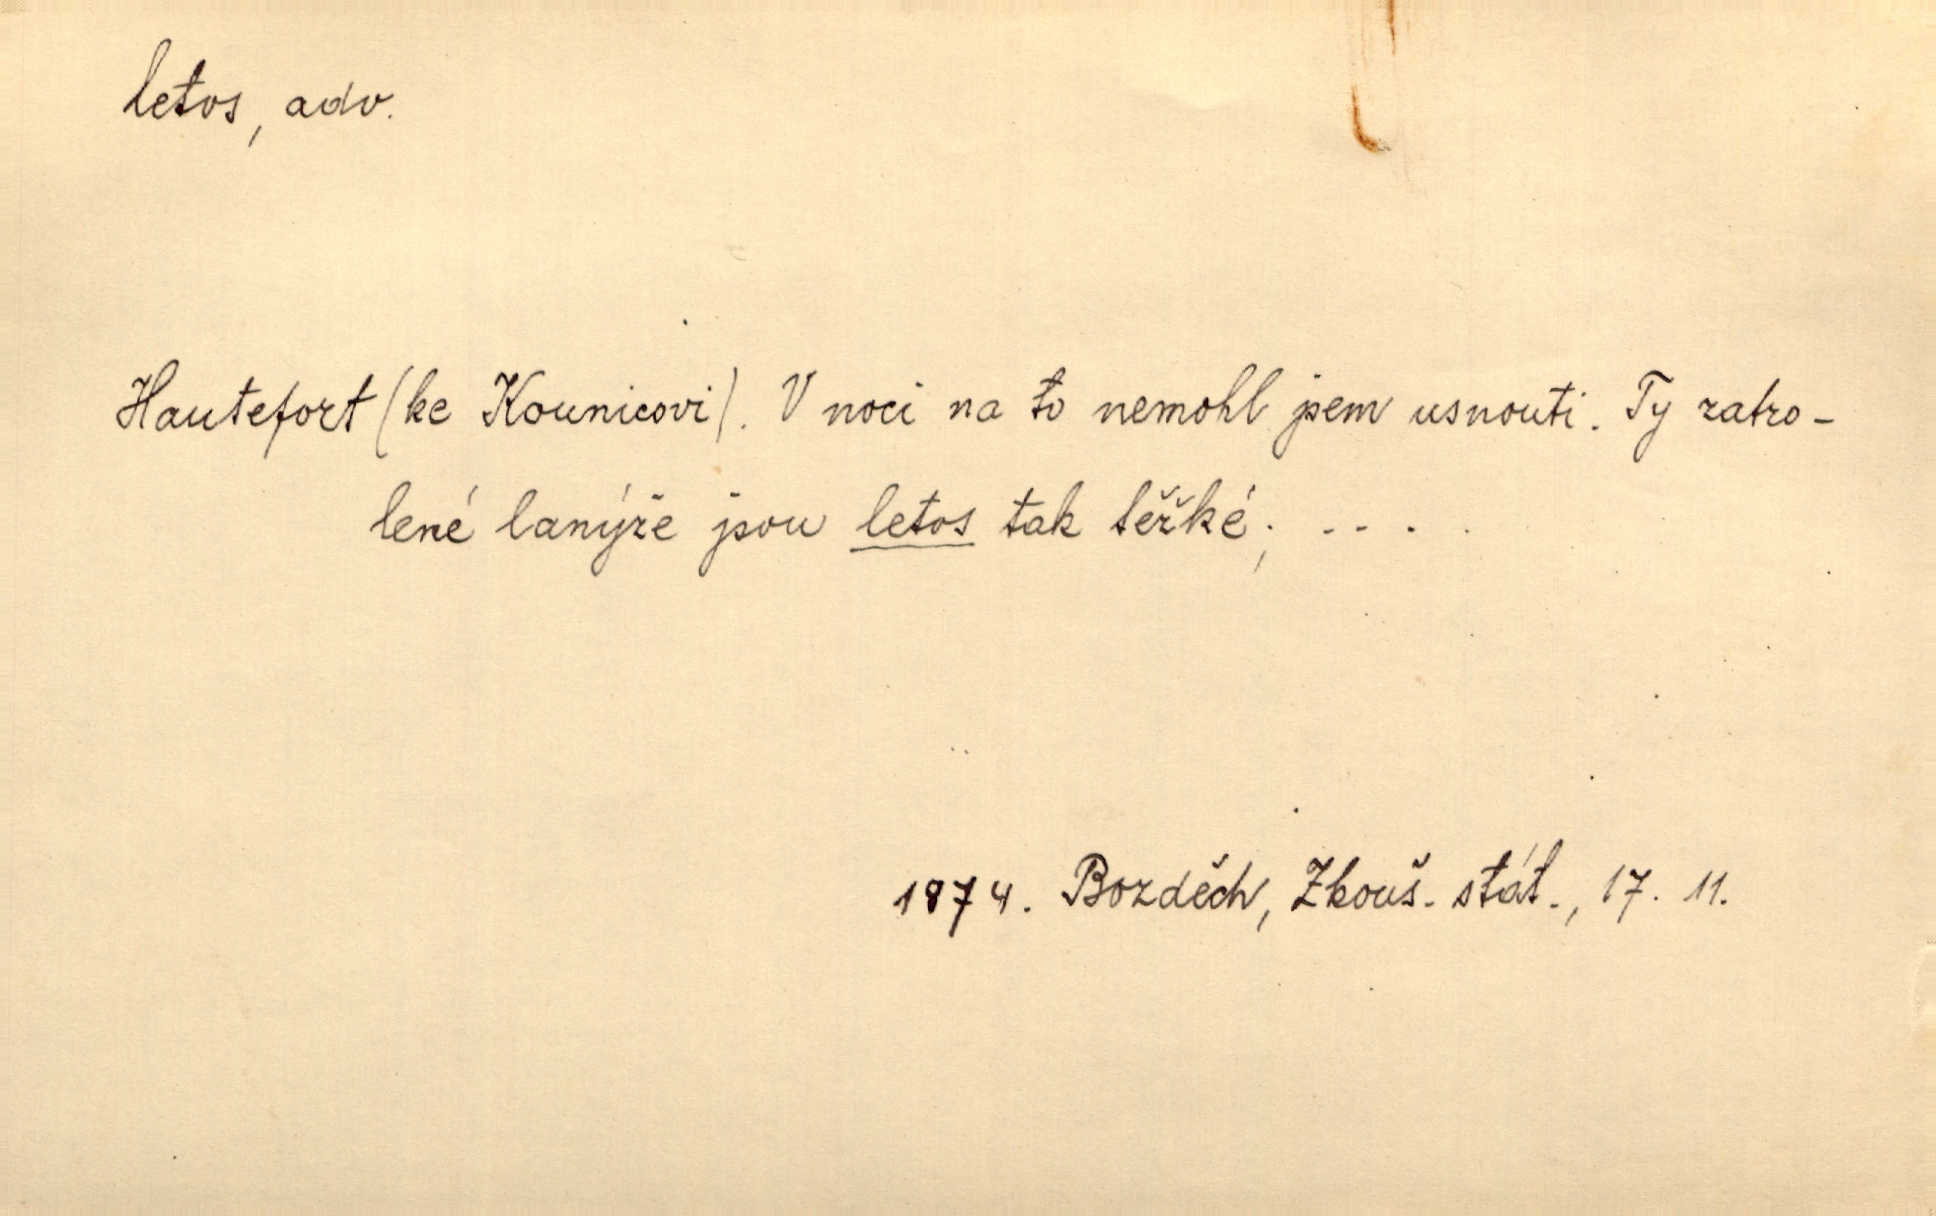 letos, adv.
Hautefort (ke Kounicovi). V noci na to nemohl jsem usnouti. Ty zatro-
lené lanýže jsou letos tak těžké; ....
1874. Bozděch, Zkouš. stát., 17. 11.